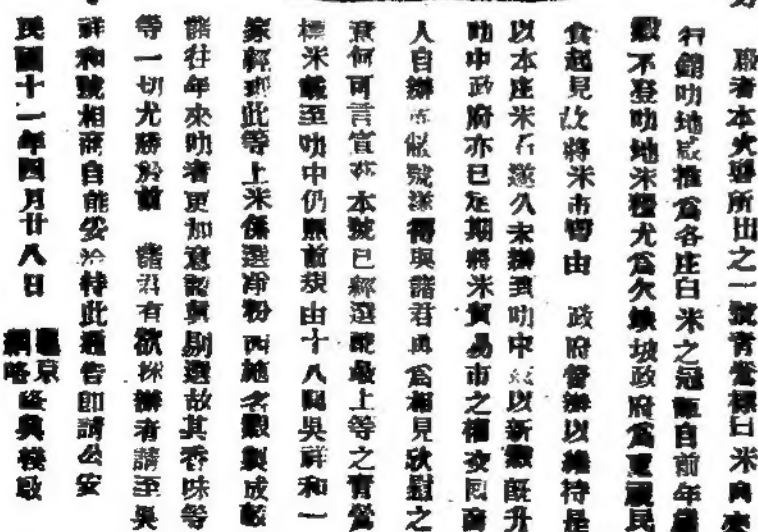 啟者本火礱所出之一號青鶯標白米向來
行銷叻地最推為各庄白米之冠 自前年
穀不登叻地米糧尤為欠缺坡政府為重顧民
食起見故將米市暫由 政府督辦以維持是
以本庄米石遂久未辦到叻中 以新穀既升
叻中政府亦已定期將米貿易市之權交回商
人自辦 敝號遂得與諸君再為相見欣慰之
衷何可言宣 本號已經選 最上等之青鶯
標米載至叻中仍照前規由十八間吳祥和一
家經理此等上米係選 粉 各穀製成較
諸往年來叻者更加意認真剔選故其香味等
等一切尤勝於前 諸君有欲採辦者請至吳
祥和號相商自能妥洽特此通告即請公安
民國十一年四月廿八日 暹京 隆興棧啟